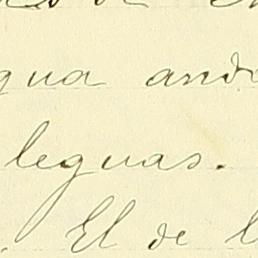 gua ande
leguas.
. El de l